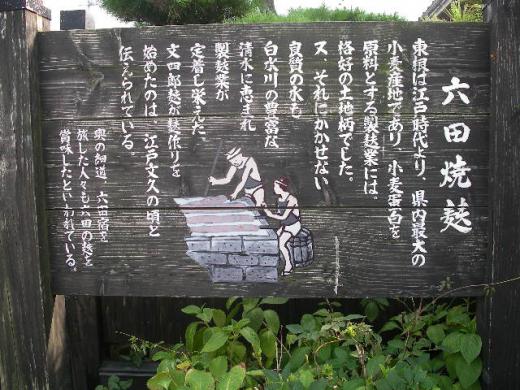 六田焼麩
東根は江戸時代より、県内最大の
小麦産地であり、小麦蛋白を
原料とする製麩業には、
格好の土地柄でした。
又、それにかかせない
良質の水も
白水川の豊富な
清水に恵まれ
製麩業が
定着し栄えた。
文四郎麩が麩作りを
始めたのは、江戸文久の頃と
伝えられている。
奥の細道、六田宿を
旅した人々も六田の麩を
賞味したといわれている。